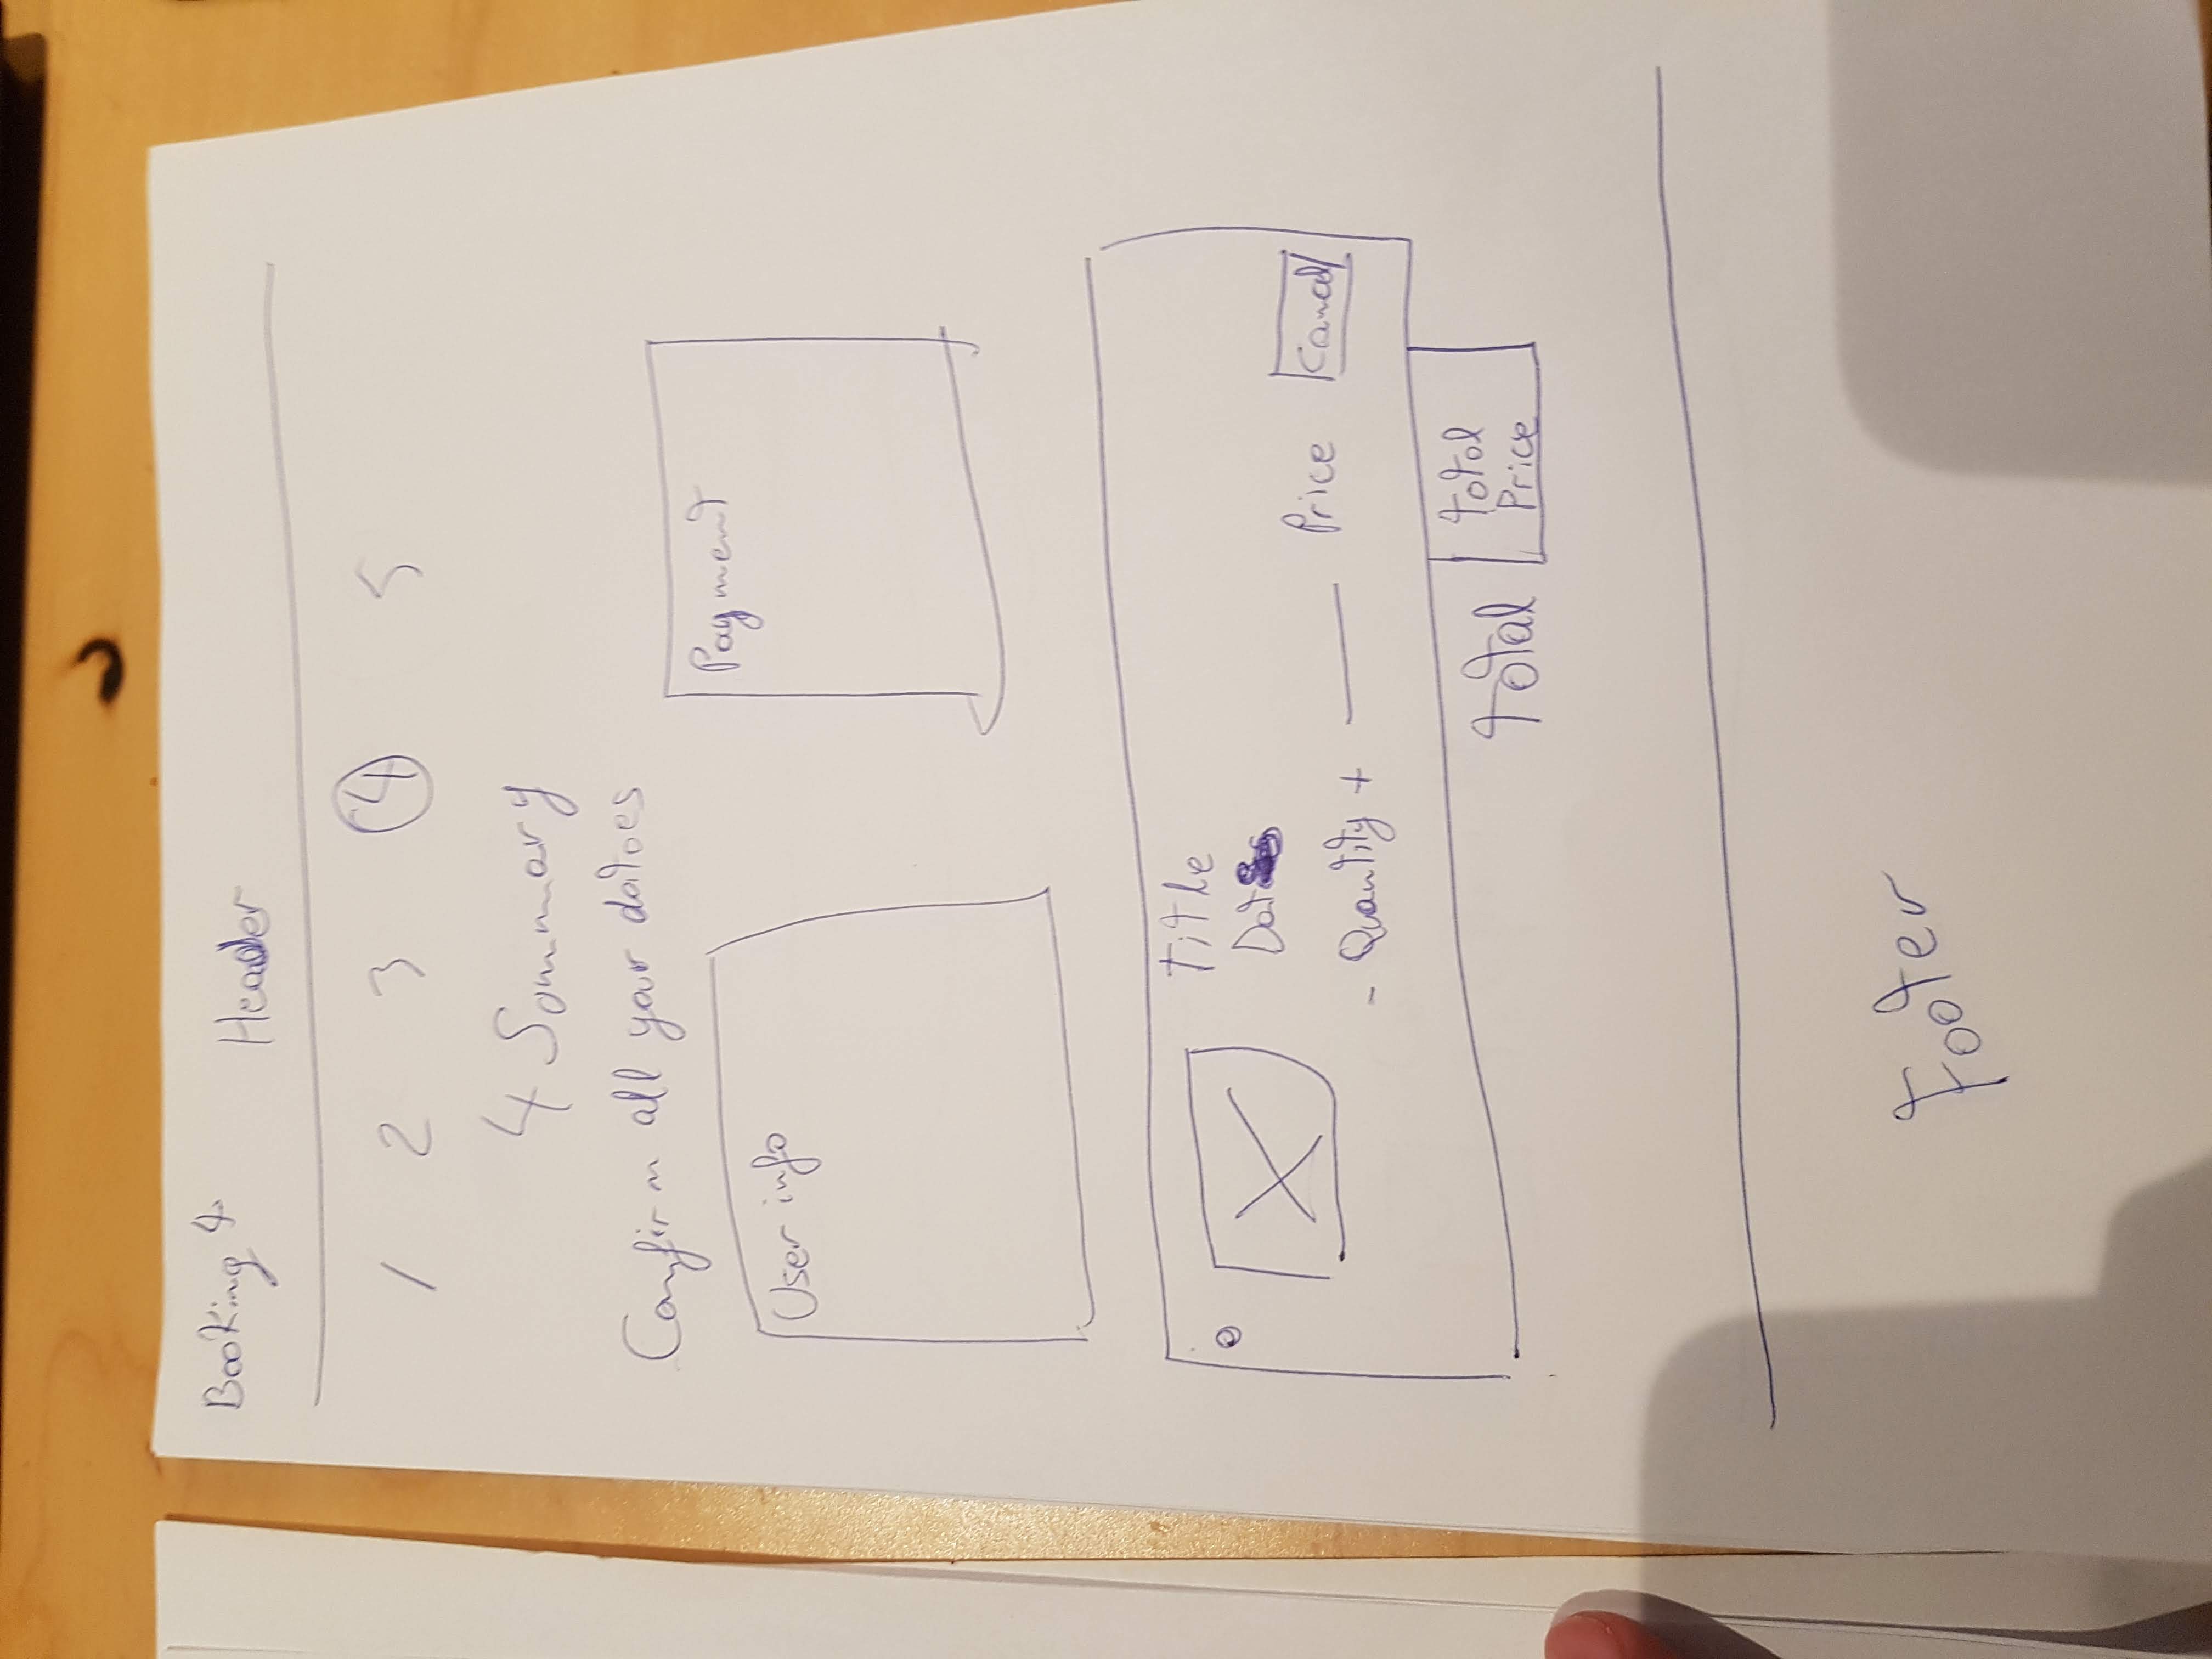 Booking 4
Header
1 2 3 4 5
4 Sommary
Confirm all your datoes
User info
Payment
Title
- Quantity + Price Cancel
Total Total
Price
Footer